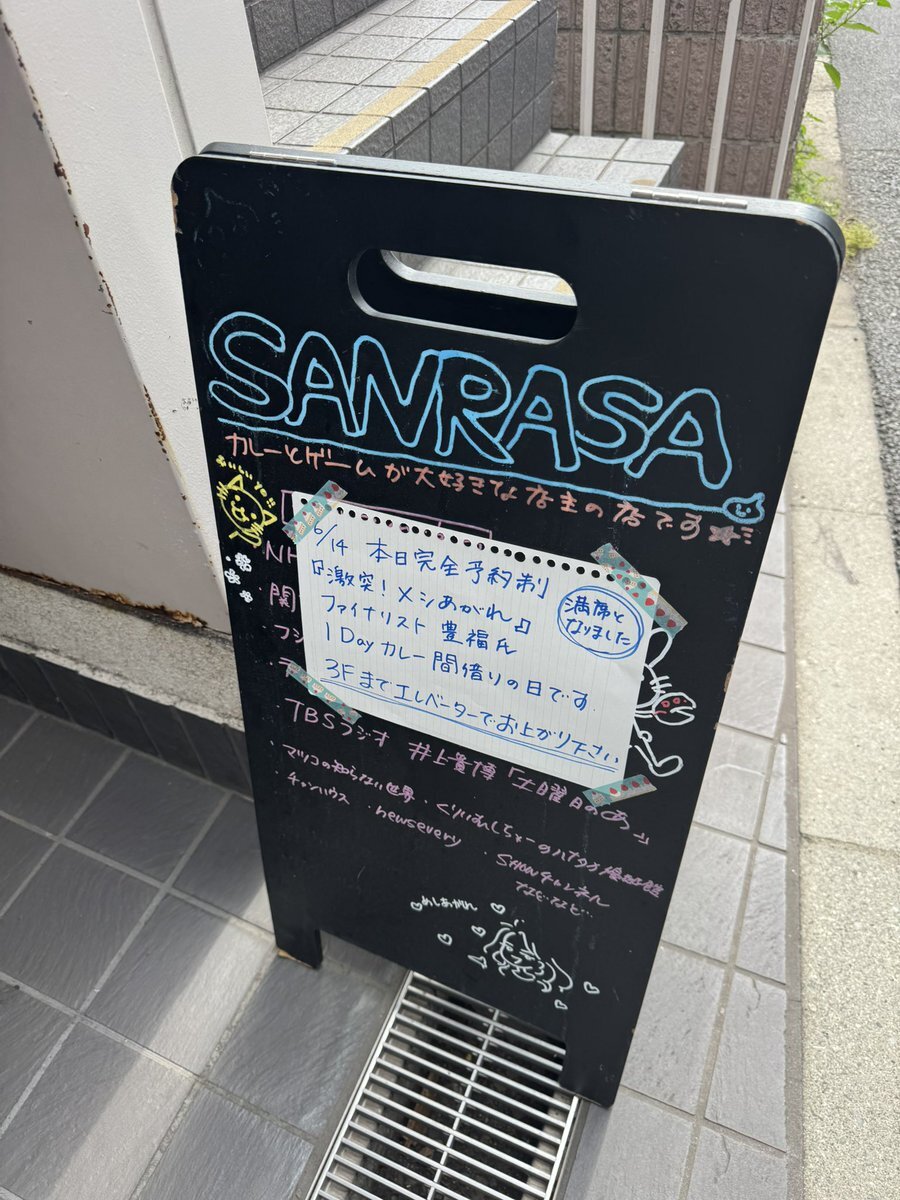 SANRASA
カレーとゲームが大好きな店主の店です
おいしいヨ!!
6/14 本日完全予約制
満席となりました
『激突!メシあがれ』
ファイナリスト 豊福氏
1Day カレー間借りの日です
3Fまでエレベーターでお上がり下さい
NH
関
フジ
TBSラジオ 井上貴博「土曜日のあ」
マツコの知らない世界・くりぃむしちゅーのハナタカ優越館
・チャンハウス ・newsevery ・SHOWチャンネル
などなど…
めしあがれ